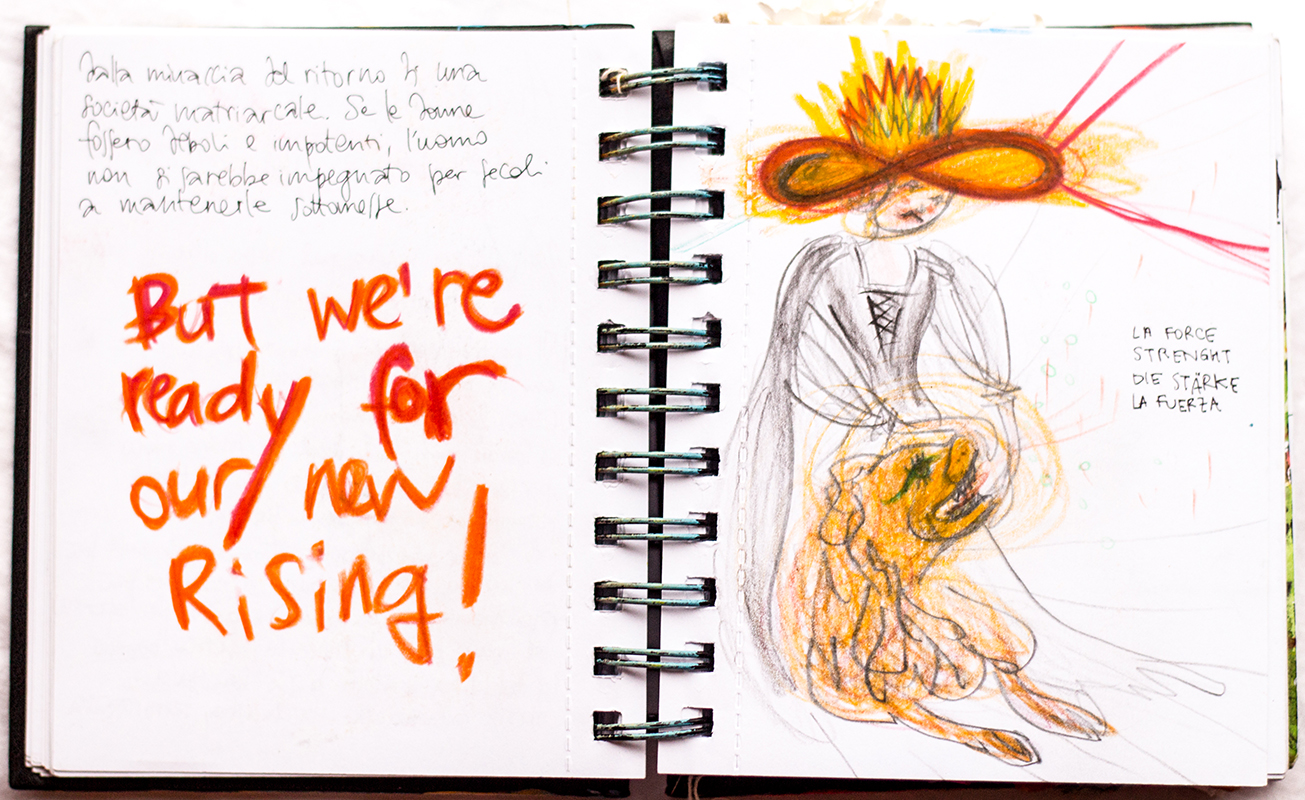 dalla minaccia del ritorno di una
società matriarcale. Se le donne
fossero deboli e impotenti, l'uomo
non si sarebbe impegnato per secoli
a mantenerle sottomesse.
But we're
ready for
our new
Rising!
LA FORCE
STRENGHT
DIE STÄRKE
LA FUERZA